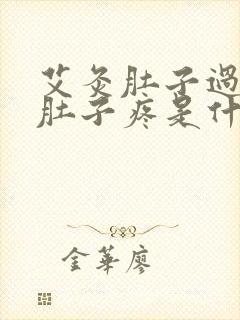 艾灸肚子過
肚子疼是什
金華廖